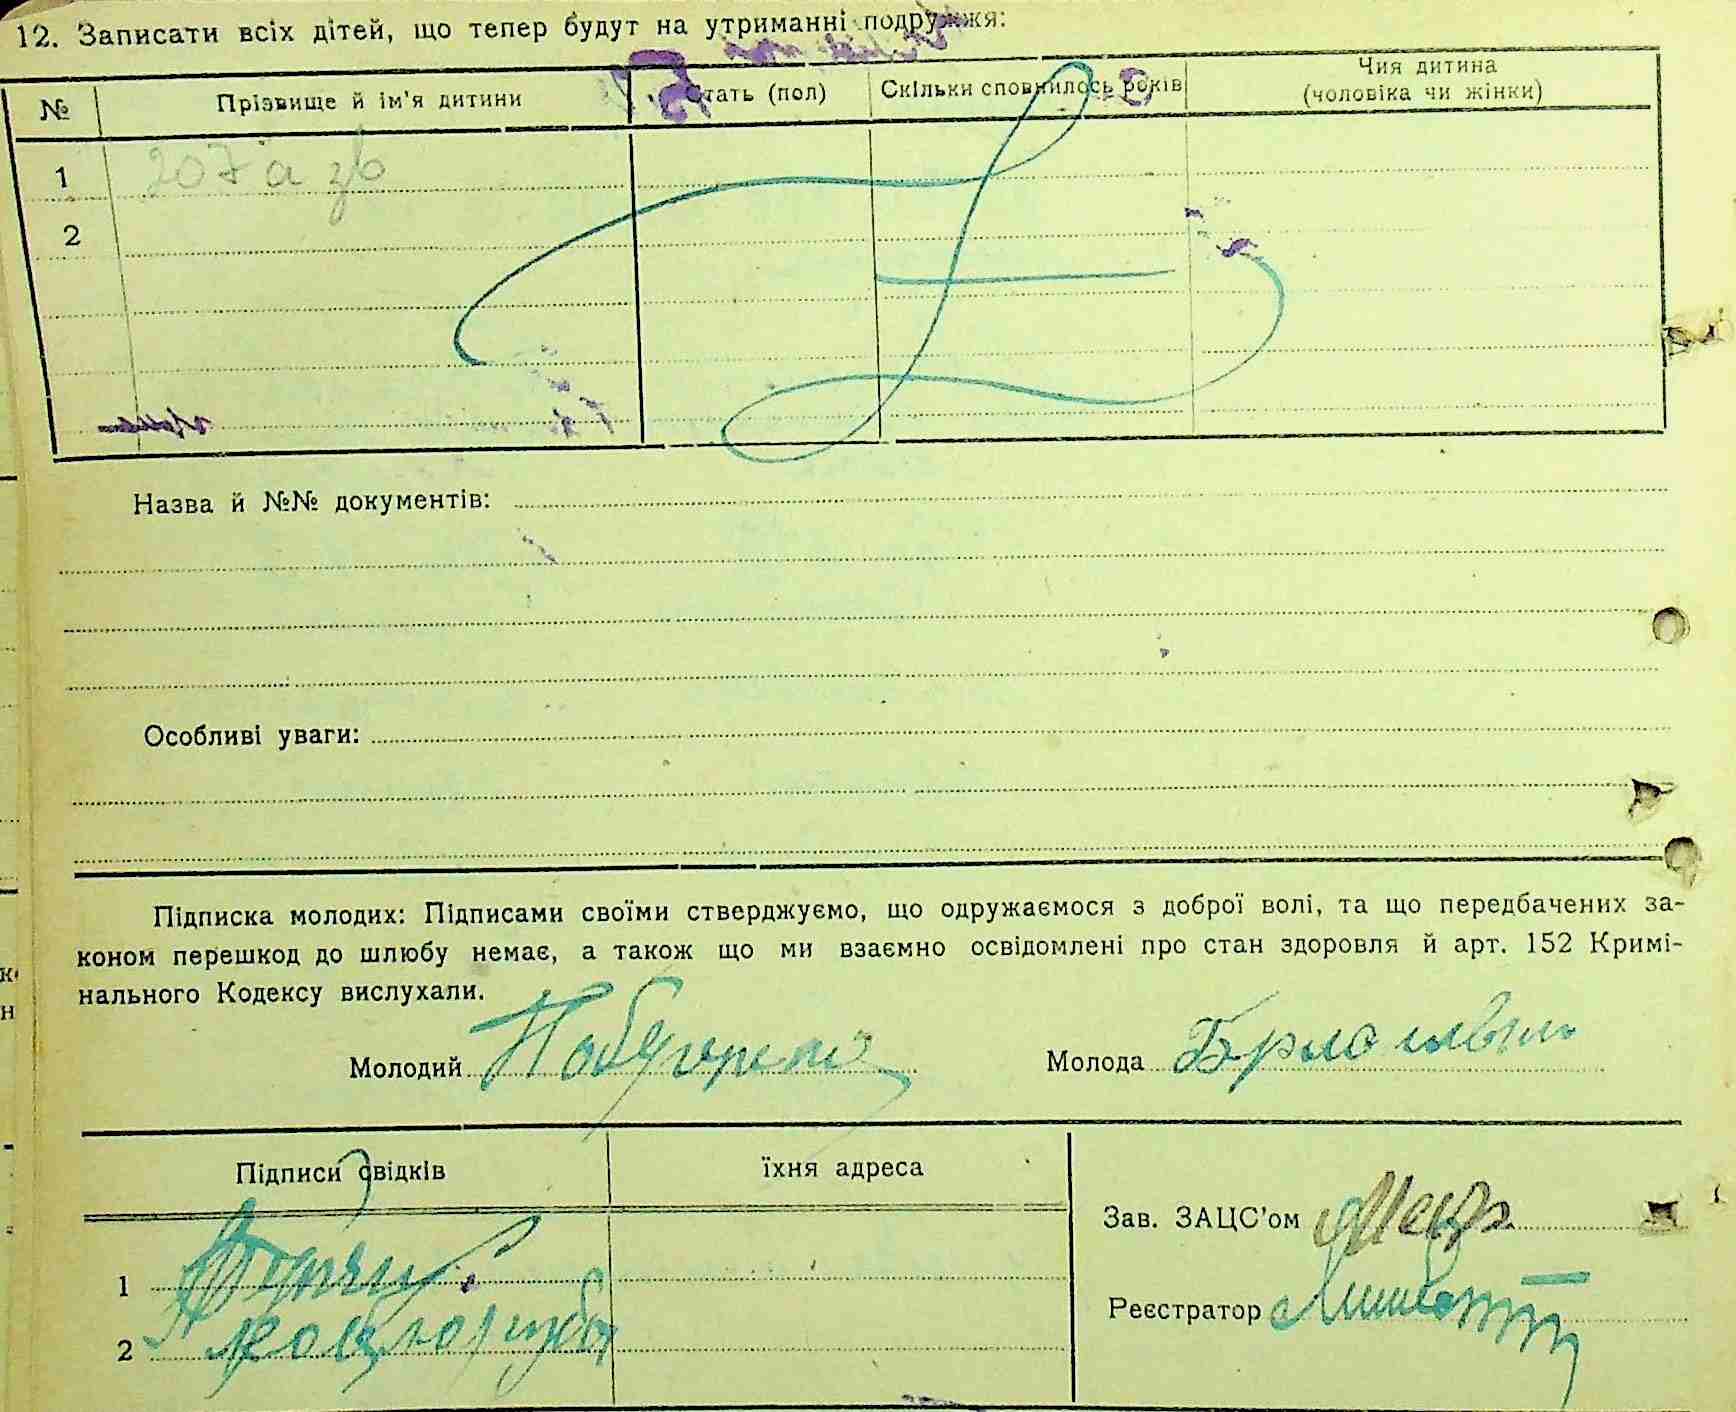 12. Записати всіх дітей, що тепер будут на утриманні подружжя:
№ Прізвище й ім'я дитини Стать (пол) Скільки сповнилось років Чия дитина
(чоловіка чи жінки)
1 207 а зв
2
Назва й №№ документів:
Особливі уваги:
Підписка молодих: Підписами своїми стверджуємо, що одружаємося з доброї волі, та що передбачених за-
коном перешкод до шлюбу немає, а також що ми взаємно освідомлені про стан здоровля й арт. 152 Кримі-
нального Кодексу вислухали.
Молодий Молода
Підписи свідків їхня адреса
Зав. ЗАЦС'ом
1
Реєстратор
2